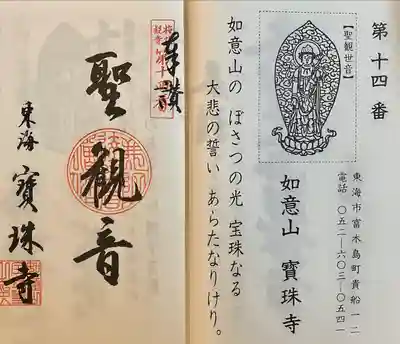 第十四番
【聖観世音】
東海市富木島町貴船一二
電話 〇五二―六〇三―〇五四一
如意山 寶珠寺
如意山の ぼさつの光 宝珠なる
大悲の誓い あらたなりけり。
奉讃
聖観音
東海 寶珠寺